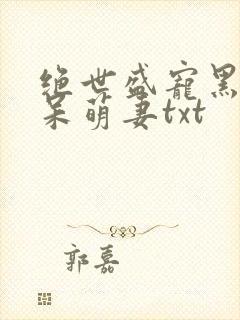 绝世盛宠黑
呆萌妻txt
郭嘉